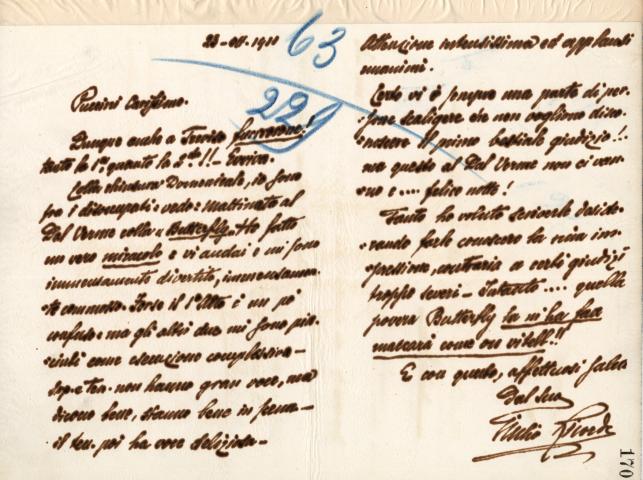 23-ott. 1911
63
229
Puccini Carissimo.
Dunque anche a Treviso furorone!
tanto la 1ª quanto la 2ª!! - Evviva.
Colla chiusura Domenicale, io sono
fra i disoccupati - vedo: Mattinata al
Dal Verme colla "Butterfly". Ho fatto
un vero miracolo e vi andai e mi sono
immensamente divertito, immensamen-
te commosso. Forse il 1º Atto è un po'
confuso - ma gli altri due mi sono pia-
ciuti come esecuzione complessiva -
sop. e ten. non hanno gran voce, ma
dicono bene, stanno bene in scena -
il ten. poi ha voce deliziosa -
Attenzione intensissima ed applausi
unanimi.
Certo vi è sempre una parte di per-
sone scaligere che non vogliono disco-
noscere il primo bestiale giudizio! -
ma queste al Dal Verme non ci van-
no e .... felice notte!
Tanto ho voluto scriverle deside-
rando farle conoscere la mia im-
pressione, contraria a certi giudizi
troppo severi - Intanto .... quella
povera Butterfly la m'ha faa
caragnà come on vitell!!
E con questo, affettuosi saluti
Dal suo
Giulio Ricordi
170